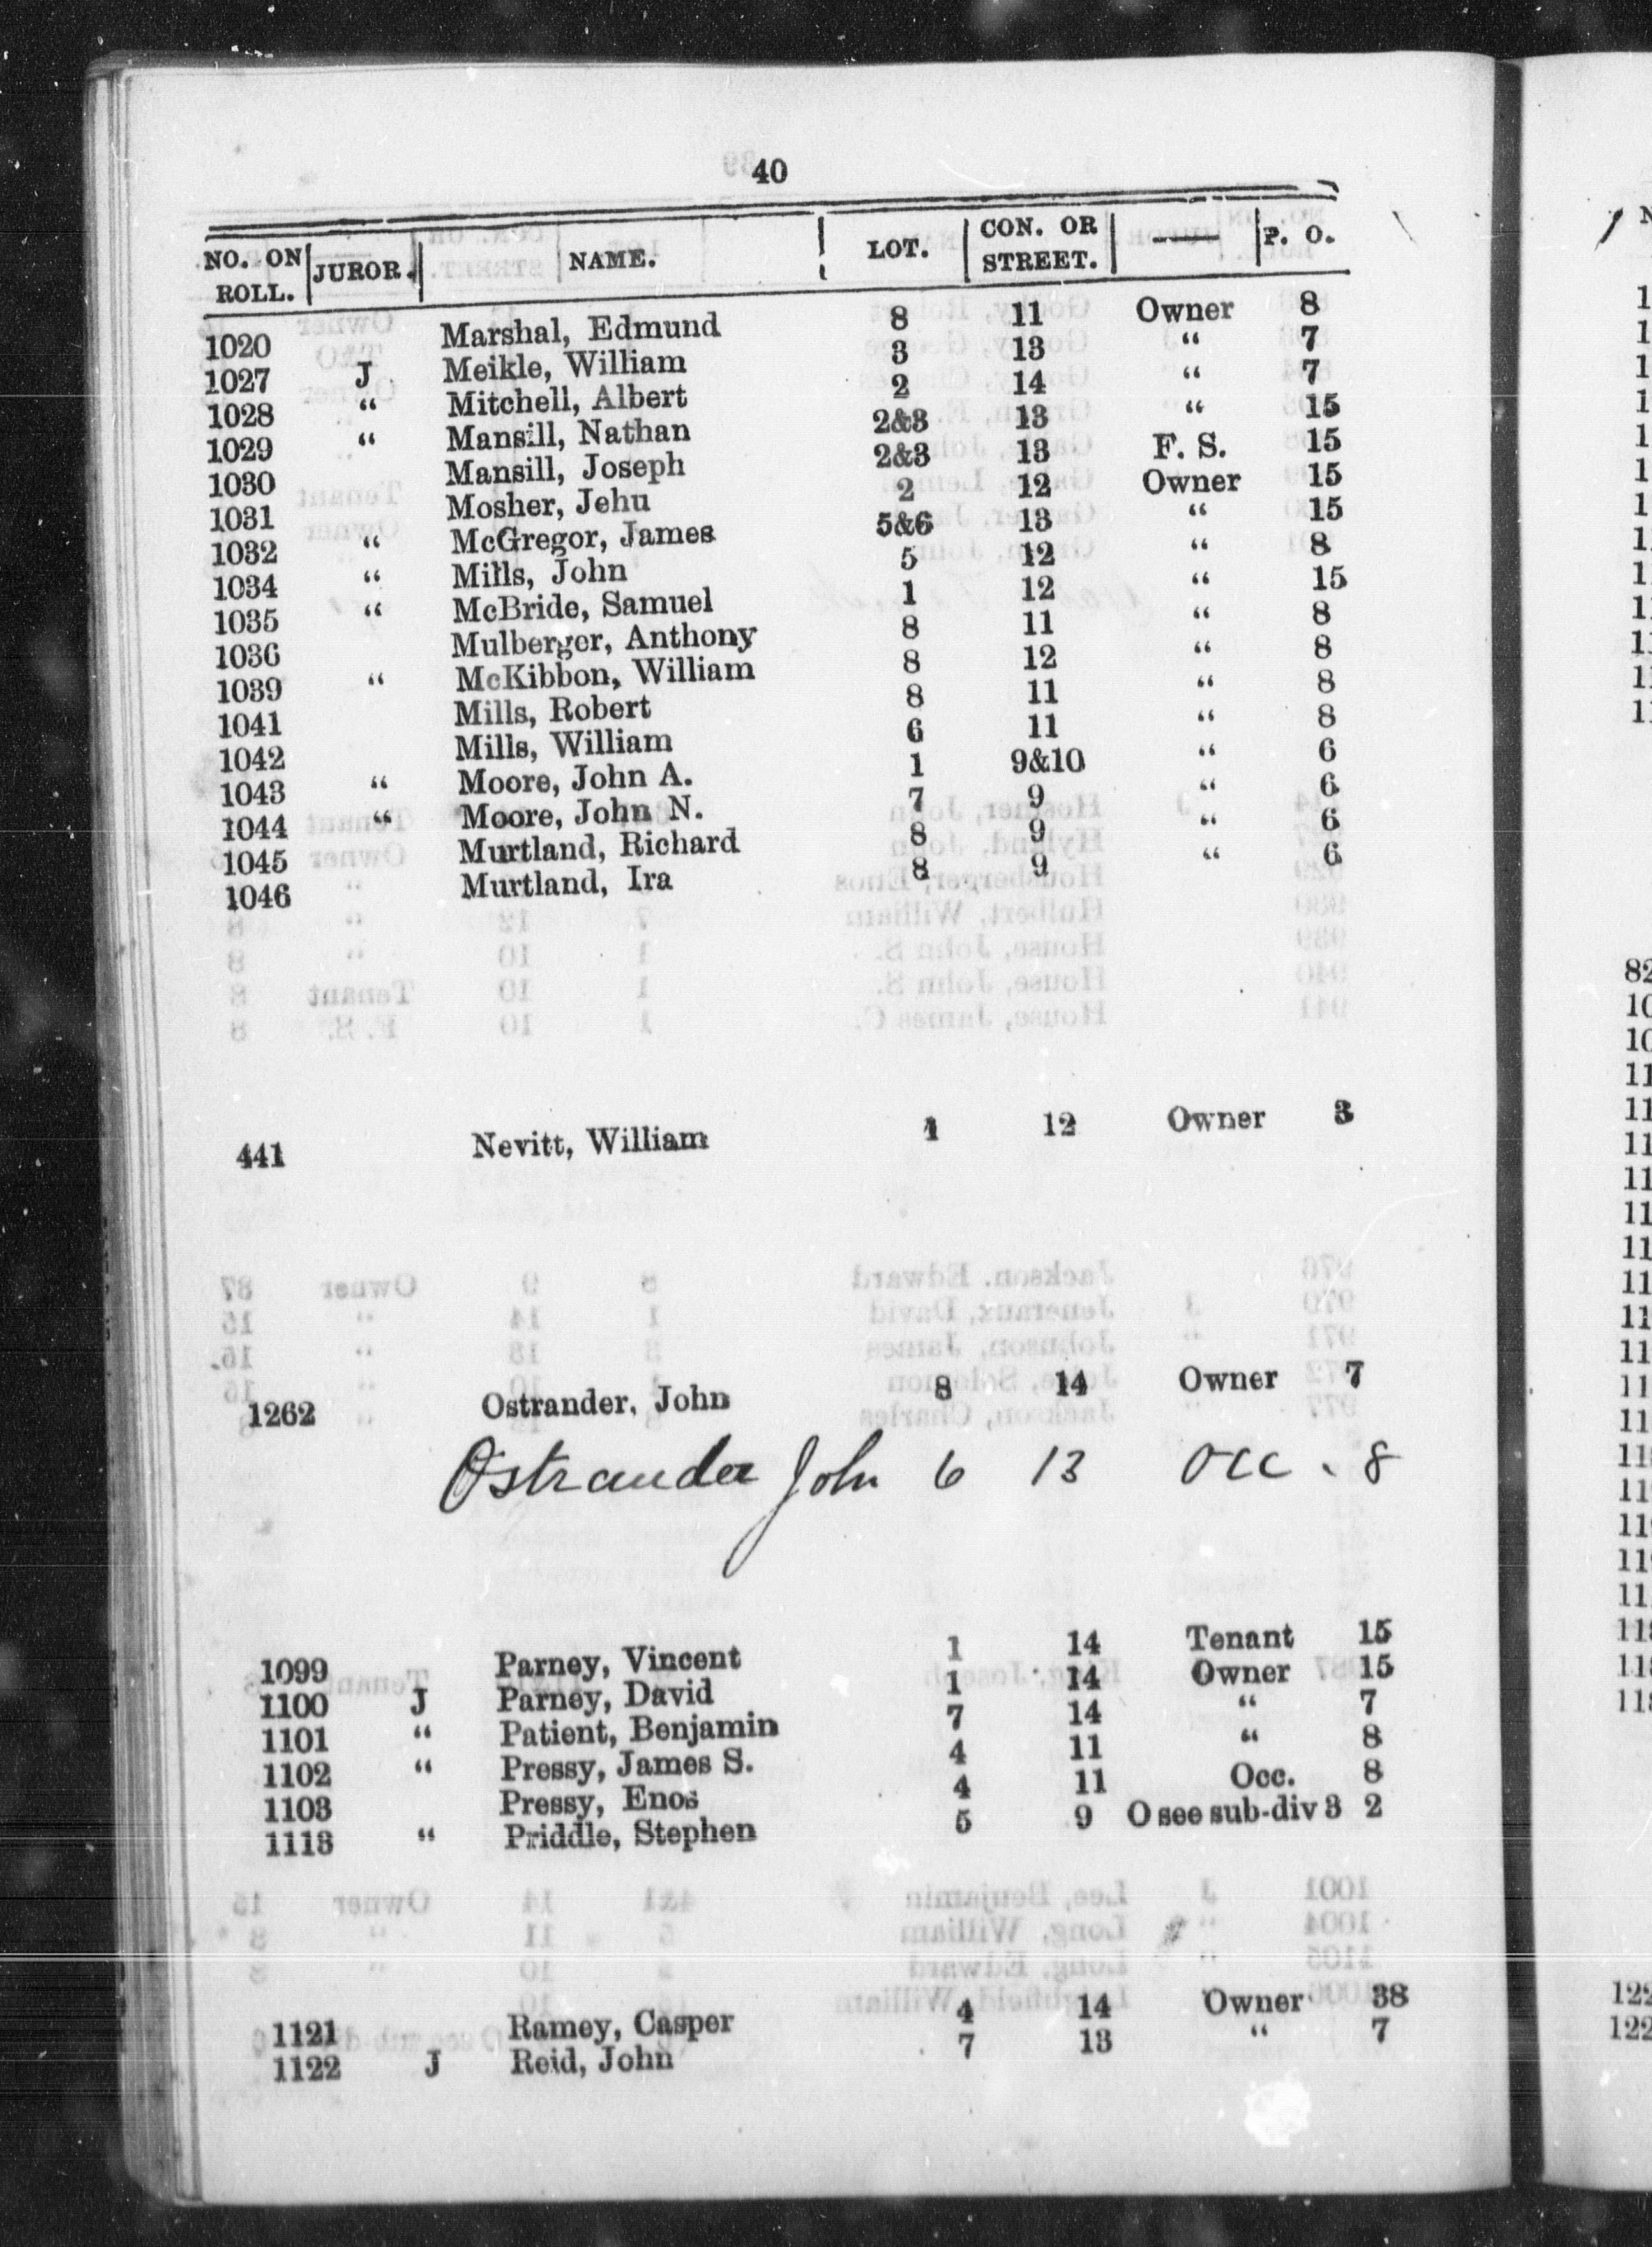 40
NO. ON ROLL. JUROR. NAME. LOT. CON. OR STREET. —— P. O.
1020 Marshal, Edmund 8 11 Owner 8
1027 J Meikle, William 3 13 “ 7
1028 “ Mitchell, Albert 2 14 “ 7
1029 “ Mansill, Nathan 2&3 13 “ 15
1030 Mansill, Joseph 2&3 13 F. S. 15
1031 Mosher, Jehu 2 12 Owner 15
1032 “ McGregor, James 5&6 13 “ 15
1034 “ Mills, John 5 12 “ 8
1035 “ McBride, Samuel 1 12 “ 15
1036 Mulberger, Anthony 8 11 “ 8
1039 “ McKibbon, William 8 12 “ 8
1041 Mills, Robert 8 11 “ 8
1042 Mills, William 6 11 “ 8
1043 “ Moore, John A. 1 9&10 “ 6
1044 “ Moore, John N. 7 9 “ 6
1045 Murtland, Richard 8 9 “ 6
1046 Murtland, Ira 8 9 “ 6
441 Nevitt, William 1 12 Owner 3
1262 Ostrander, John 8 14 Owner 7
Ostrander John 6 13 Occ. 8
1099 Parney, Vincent 1 14 Tenant 15
1100 J Parney, David 1 14 Owner 15
1101 “ Patient, Benjamin 7 14 “ 7
1102 “ Pressy, James S. 4 11 “ 8
1103 Pressy, Enos 4 11 Occ. 8
1113 “ Priddle, Stephen 5 9 O see sub-div 3 2
1121 Ramey, Casper 4 14 Owner 38
1122 J Reid, John 7 13 “ 7